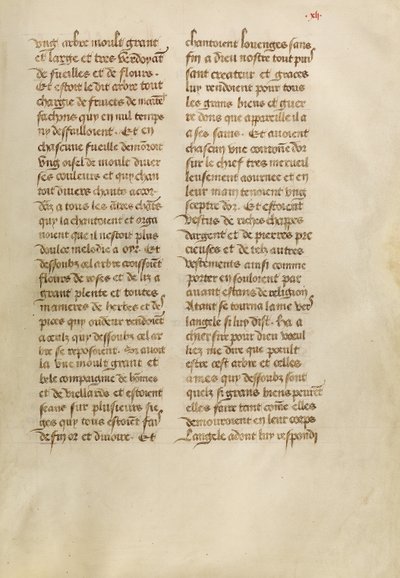 xlj.
vng arbre moult grant
et large et tres verdoyāt
de fueilles et de flours.
Et estoit le dit arbre tout
chargie de fruicts de maītes
fachons quy en nul temps
ny deffailloient. Et en
chascune fueille demoroit
vng oisel de moult diuer
ses couleurs et quy chan
toit diuers chants accor
dās a tous les autres chāts
quy la chantoient et orga
noient que il nestoit plus
doulce melodie a oyr. Et
dessoubz cel arbre croissoiēt
flours de roses et de liz a
grant plente et toutes
manieres de herbes et des
pices quy oudeur rendoiēt
a ceulz quy dessoubz cel ar
bre se reposoient. Son auoit
la vne moult grant et
belle compaignie de hōmes
et de viellards et estoient
seans sur plusieurs sie
ges quy tous estoiēt fais
de fin or et diuoire. Et
chantoient louenges sans
fin a dieu nostre tout puis
sant createur et graces
luy rendoient pour tous
les grans biens et guer
re dons que appareillie il a
a ses sains. Et auoient
chascun vne couronne dor
sur le chief tres merueil
leusement aournee et en
leur main tenoient vng
sceptre dor. Et estoient
vestus de riches chappes
dargent et de pierres pre
cieuses et de telz autres
vestements ainsi comme
porter en souloient par
auant estans de religion
Atant se tourna lame vers
langele si luy dist. Ha a
chier sire pour dieu vueil
liez me dire que poeult
estre cest arbre et celles
ames quy dessoubz sont
quelz si grans biens peurēt
elles faire tant cōme elles
demouroient en leur corps
Langele adont luy respondi